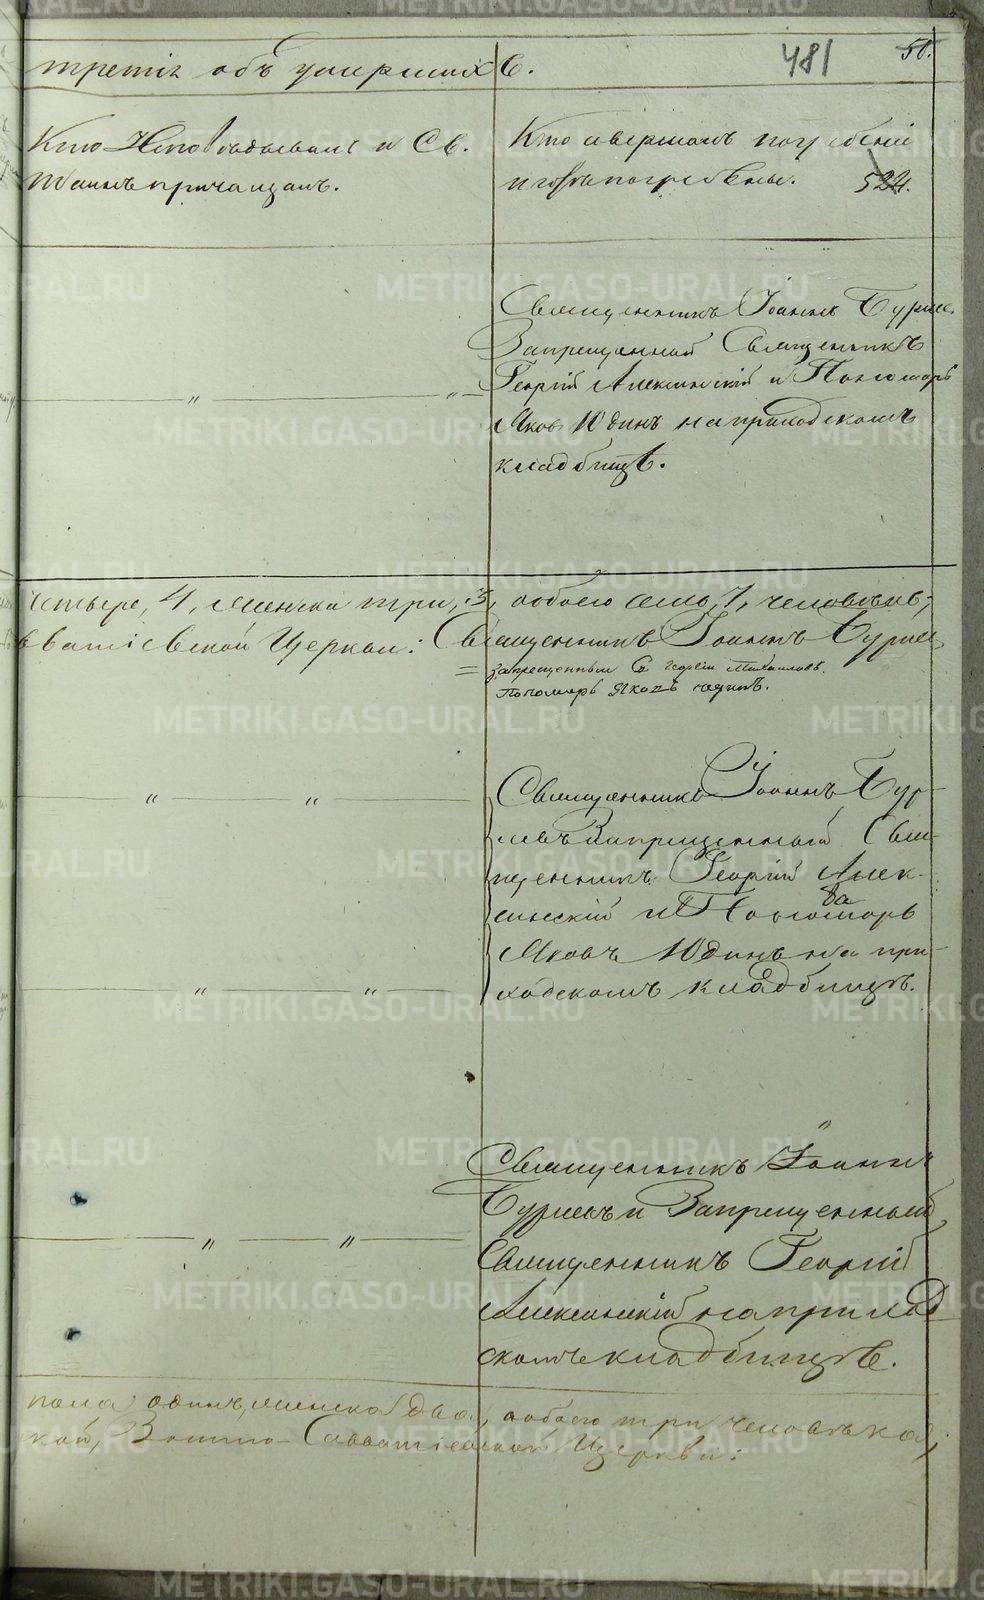 третiя объ умершихъ.
481
50.
Кто Исповѣдывалъ и Св.
Тайнъ причащалъ.
Кто совершалъ погребенiе
и гдѣ погребены.
524.
Священникъ Iоаннъ
Запрещенный Священникъ
Георгiй и Пономарь
Яковъ Юдинъ на приходскомъ
кладбищѣ.
четыре, 4, женска три, 3, обоего семь, 7, человѣкъ;
Церкви: Священникъ Iоаннъ
запрещенный Св. Георгiй Михайловъ
Пономарь Яковъ Юдинъ.
Священникъ Iоаннъ
Запрещенный Свя-
щенникъ Георгiй
и Пономарь
Яковъ Юдинъ на при-
ходскомъ кладбищѣ.
Священникъ Iоаннъ
и Запрещенный
Священникъ Георгiй
на приход
скомъ кладбищѣ.
пола одинъ, женска два, обоего три человѣка;
Савватiевской Церкви:
METRIKI.GASO-URAL.RU